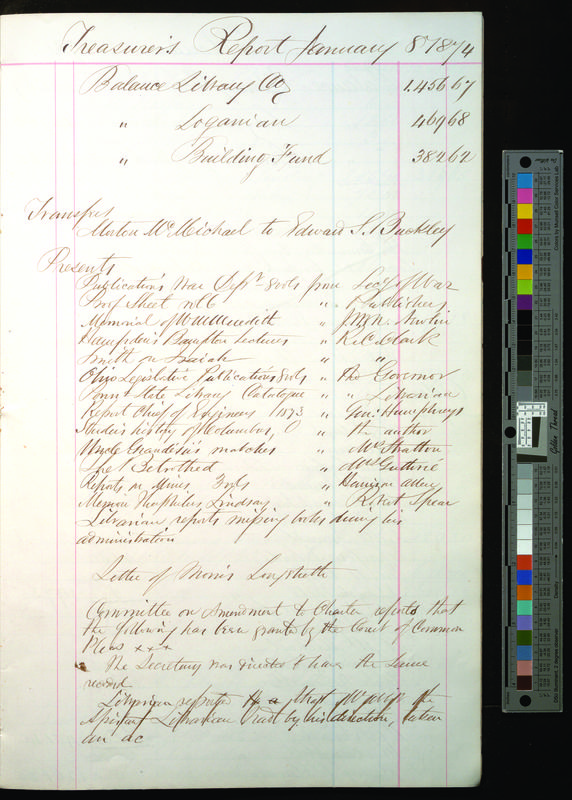 Treasurer's Report January 8th 1874
Balance Library Co 1.456 67
" Loganian 469 68
" Building Fund 382 62
Transfres
Morton McMichael to Edward S. Buckley
Presents
Publications War Dept 8 vols from Secy of War
Proof Sheet No 6 " Publishers
Memorial of W M Meredith " J.W.M. Newlin
Hampden's Bampton Lectures " R.C. Clark
Smith on Isaiah " "
Ohio Legislative Publications 8 vols " The Governor
Penna State Library Catalogue " " Librarian
Report Chief of Engineers 1873 " Gen: Humphreys
Studer's history of Columbus, O " the author
Uncle Grandison's matches " Mrs Stratton
The Betrothed " Mrs Guthrie
Reports on Mines 3 vols " Harrison Allen
Memoir Theophilus Lindsay " R. Ket Spear
Librarian reports missing books during his
administration
Letter of Morris Longstreth
Committee on Amendment to Charter reports that
the following has been granted by the Court of Common
Pleas x x x
The Secretary was directed to have the same
record
Librarian reported the
Assistant Librarian by his direction, taken
an ac